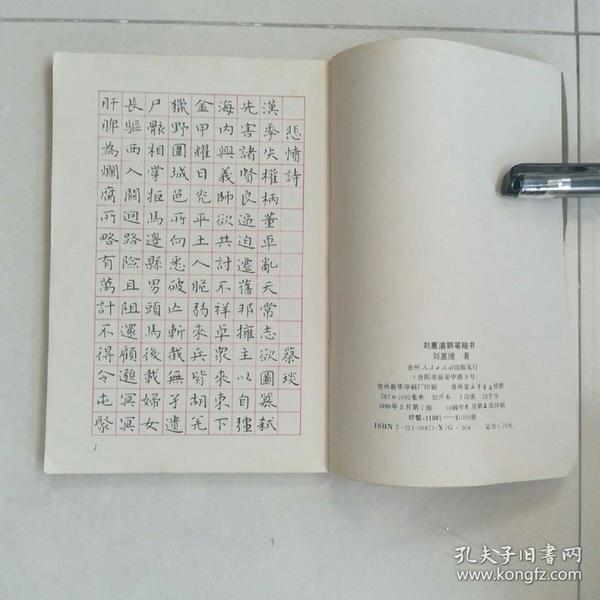 悲憤詩 蔡琰
漢季失權柄董卓亂天常志欲圖篡弒
先害諸賢良逼迫遷舊邦擁主以自彊
海內興義師欲共討不祥卓眾來東下
金甲耀日光平土人脆弱來兵皆胡羌
獵野圍城邑所向悉破亡斬截無孑遺
尸骸相掌拒馬邊縣男頭馬後載婦女
長驅西入關迥路險且阻還顧邈冥冥
肝脾為爛腐所略有萬計不得令屯聚
1
刘惠浦钢笔楷书
刘惠浦 著
贵州人民出版社出版发行
(贵阳市延安中路9号)
贵州新华印刷厂印刷 贵州省新华书店经销
787×1092毫米 32开本 1印张 15千字
1989年5月第1版 1990年6月第2次印刷
印数:11001——31000册
ISBN 7-221-00871-X/G·304 定价1.25元
孔夫子旧书网
www.kongfz.com